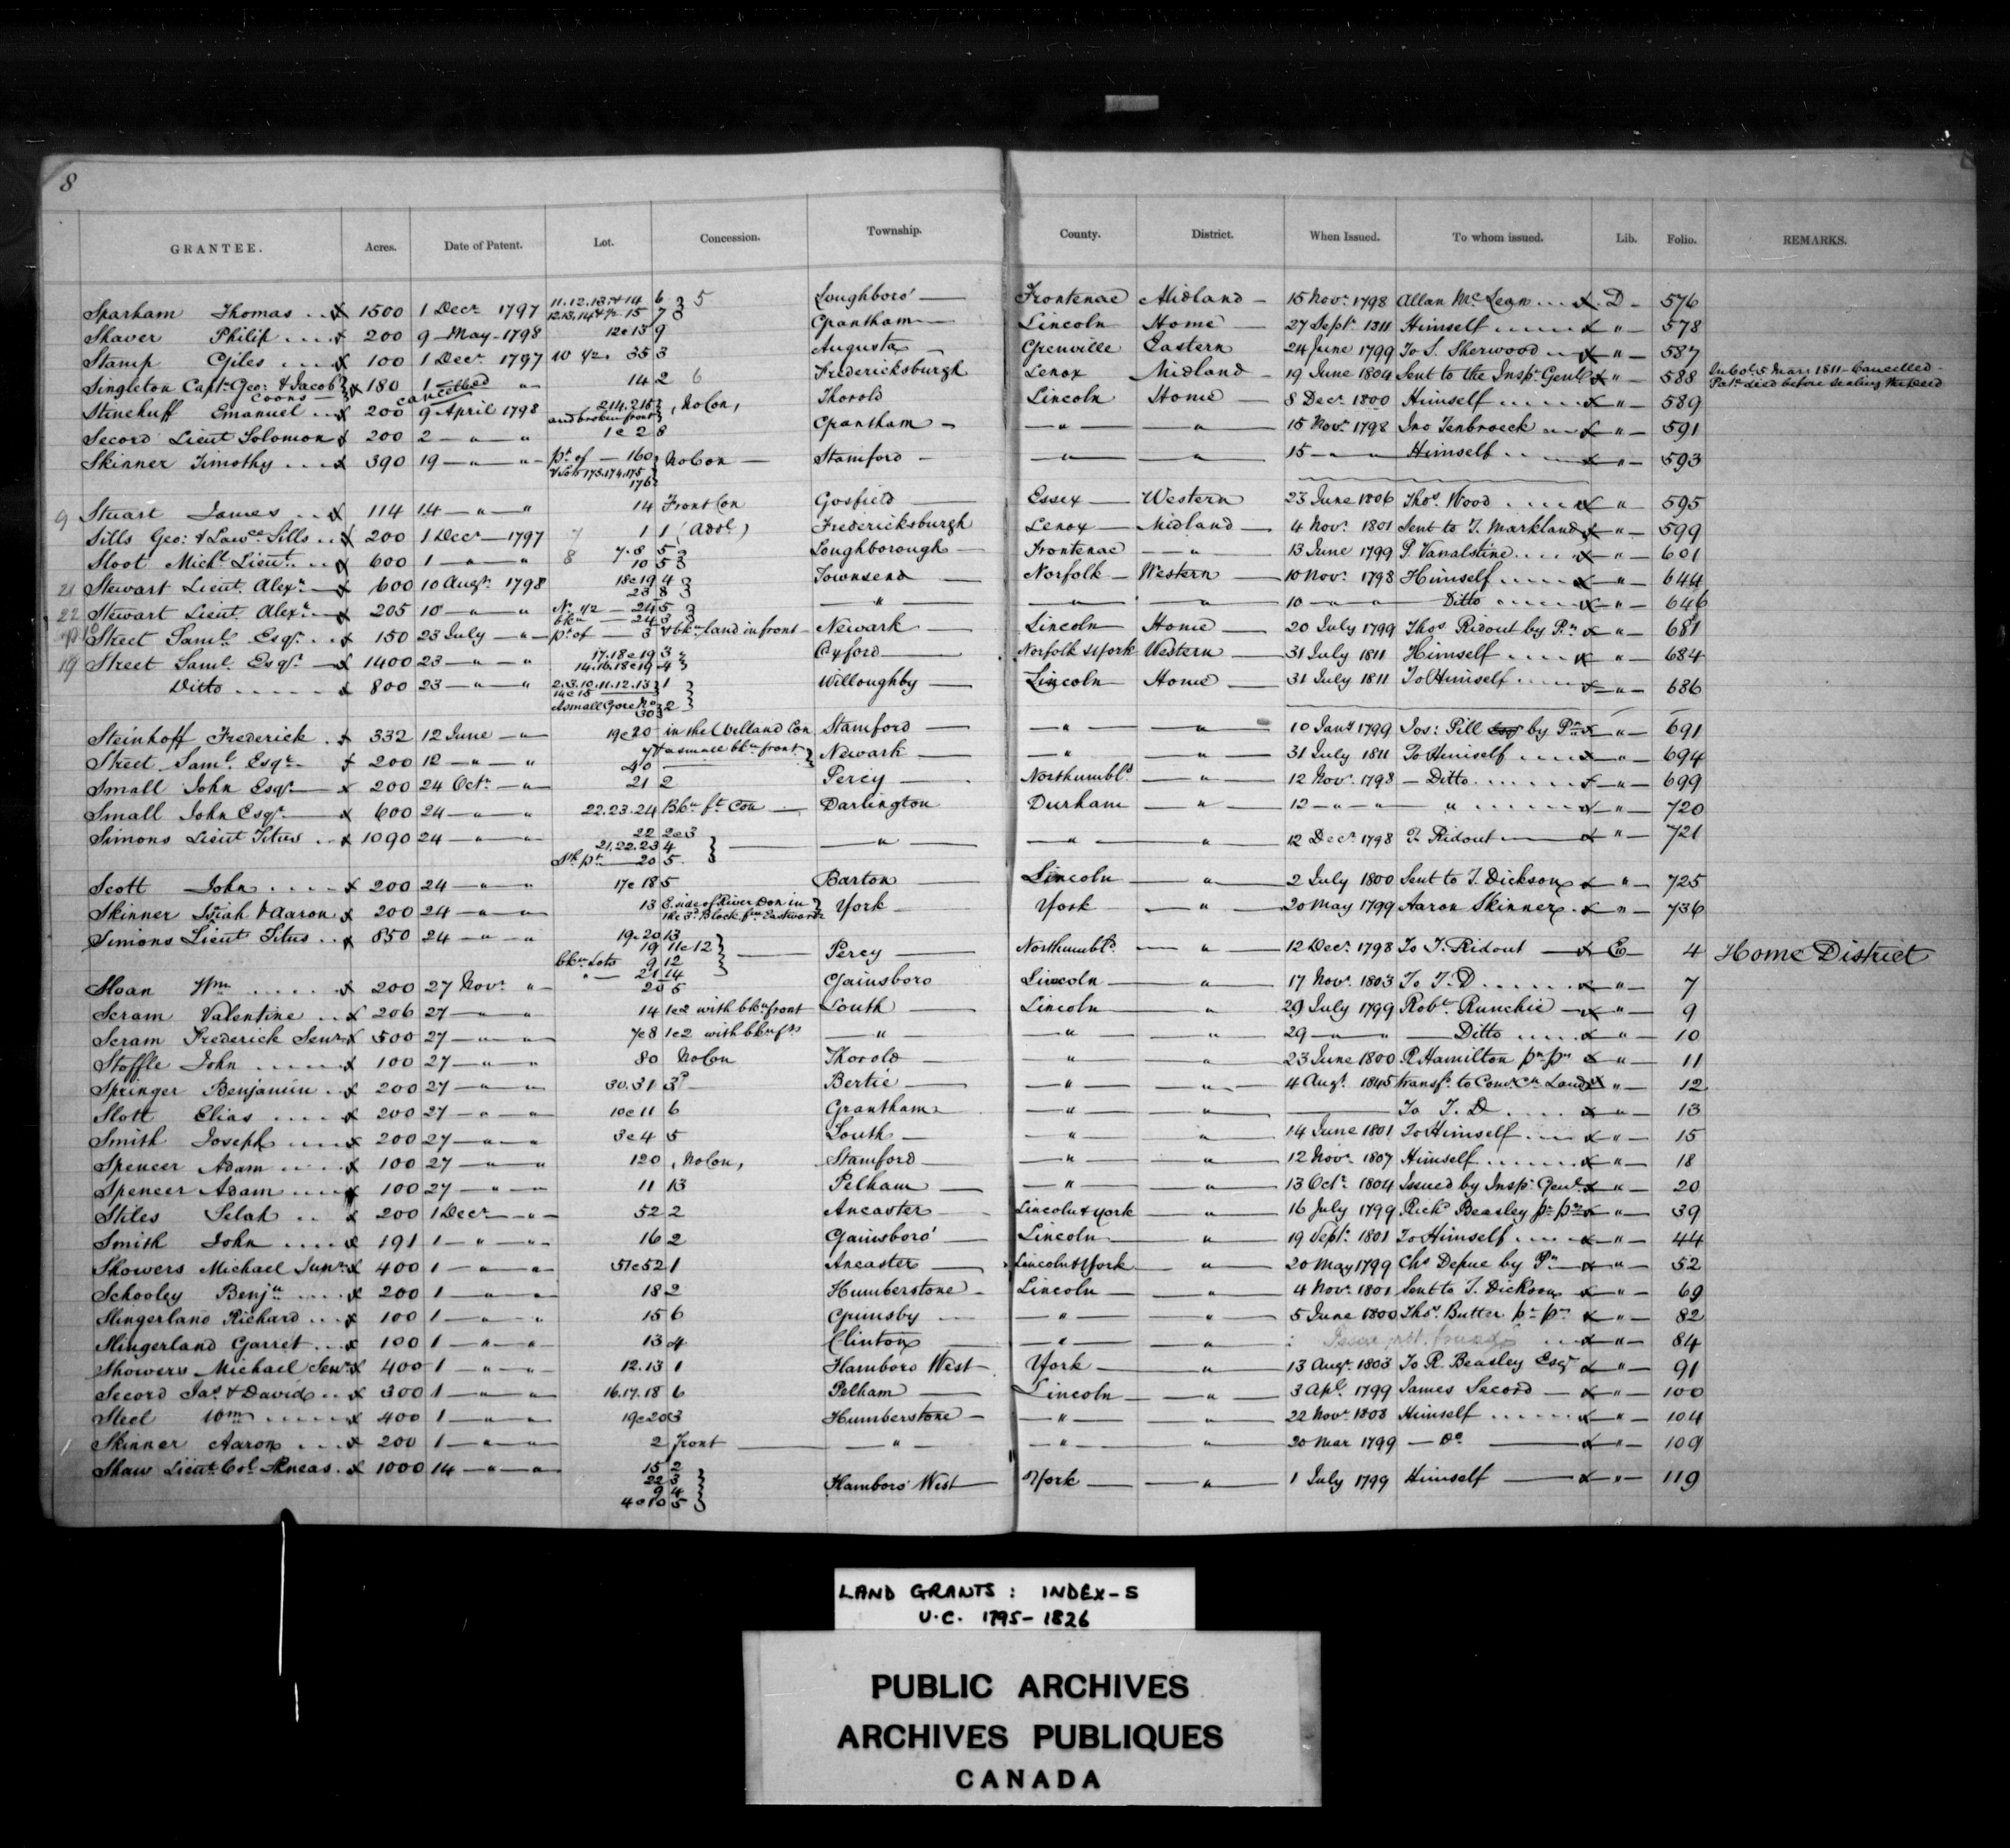 8
GRANTEE. Acres. Date of Patent. Lot. Concession. Township. County. District. When Issued. To whom issued. Lib. Folio. REMARKS.
Sparham Thomas 1500 1 Decr 1797 11.12.13.&14 6 } 5 Loughboro' Frontenac Midland 15 Novr 1798 Allan McLean D 576
12.13.14 & ½ 15 7
Shaver Philip 200 9 May 1798 12 e 13 9 Grantham Lincoln Home 27 Septr 1811 Himself " 578
Stamp Giles 100 1 Decr 1797 W ½. 35 3 Augusta Grenville Eastern 24 June 1799 To S. Sherwood " 587
Singleton Captn Geo: & Jacob Coons 180 1 cancelled " 14 2 6 Fredericksburgh Lenox Midland 19 June 1804 Sent to the Inspr Genl " 588 In Col. 5 Mar. 1811 - Cancelled - Patee died before sealing the Deed
Stenehuff Emanuel 200 9 April 1798 214.215 } No Con, Thorold Lincoln Home 8 Decr 1800 Himself " 589
and broken front
Secord Lieut Solomon 200 2 " " 1 e 2 8 Grantham " " 15 Novr 1798 Jno Tenbroeck " 591
Skinner Timothy 390 19 " " pt of 160 } No Con Stamford " " 15 " " Himself " 593
& Lots 173.174.175
176
9 Stuart James 114 14 " " 14 Front Con Gosfield Essex Western 23 June 1806 Thos Wood " 595
Sills Geo: & Lawce Sills 200 1 Decr 1797 7 1 1 (Addl) Fredericksburgh Lenox Midland 4 Novr 1801 Sent to T. Markland " 599
Sloot Michl Lieut. 600 1 " " 8 7.8 5 } Loughborough Frontenac " 13 June 1799 P. Vanalstine " 601
10 5
21 Stewart Lieut. Alexr 600 10 Augt 1798 18 e 19 4 } Townsend Norfolk Western 10 Novr 1798 Himself " 644
23 8
22 Stewart Lieut. Alexr 205 10 " " No ½ 24 5 } " " " 10 " " Ditto " 646
bkn 24 3
Street Saml Esqr 150 23 July " pt of 3 & bkn land in front Newark Lincoln Home 20 July 1799 Thos Ridout by Pn " 681
19 Street Saml Esqr 1400 23 " " 17.18 e 19 3 } Oxford Norfolk & York Western 31 July 1811 Himself " 684
14.16.18 e 19 4
Ditto 800 23 " " 2.3.10.11.12.13 } 1 Willoughby Lincoln Home 31 July 1811 To Himself " 686
14 e 15
A small Gore No 30 } 2
Steinhoff Frederick 332 12 June " 19 e 20 in the Welland Con Stamford " " 10 Jany 1799 Jos: Pill by Pn " 691
Street Saml Esqr 200 12 " " 9 & a small bkn front } Newark " " 31 July 1811 To Himself " 694
40
Small John Esqr 200 24 Octr " 21 2 Percy Northumbld " 12 Novr 1798 Ditto " 699
Small John Esqr 600 24 " " 22.23.24 Bkn ft Con Darlington Durham " 12 " " " " 720
Simons Lieut Titus 1090 24 " " 22 2 e 3 } " " " 12 Decr 1798 T Ridout " 721
21.22.23 4
Nh pt 20 5
Scott John 200 24 " " 17 e 18 5 Barton Lincoln " 2 July 1800 Sent to T. Dickson " 725
Skinner Isiah & Aaron 200 24 " " 13 E. side of River Don in the 3d Block fm Eastward } York York " 20 May 1799 Aaron Skinner " 736
Simons Lieut Titus 850 24 " " 19.20 13 } Percy Northumbld " 12 Decr 1798 To T. Ridout E 4 Home District
19 11 e 12
bkn Lots 9 12
" 21 14
Sloan Wm 200 27 Novr " 20 5 Gainsboro Lincoln " 17 Novr 1803 To T. D. " 7
Scram Valentine 206 27 " " 14 1 e 2 with bkn front Louth Lincoln " 29 July 1799 Robt Runchie " 9
Scram Frederick Senr 500 27 " " 7 e 8 1 e 2 with bkn fts " " " 29 " " Ditto " 10
Stoffle John 100 27 " " 80 No Con Thorold " " 23 June 1800 R Hamilton pr pn " 11
Springer Benjamin 200 27 " " 30.31 3d Bertie " " 4 Augt 1845 transfd to Comr Cn Lands " 12
Slott Elias 200 27 " " 10 e 11 6 Grantham " " To T. D. " 13
Smith Joseph 200 27 " " 3 e 4 5 Louth " " 14 June 1801 To Himself " 15
Spencer Adam 100 27 " " 120 , No Con, Stamford " " 12 Novr 1807 Himself " 18
Spencer Adam 100 27 " " 11 13 Pelham " " 13 Octr 1804 Issued by Inspr Genl " 20
Stiles Selah 200 1 Decr " 52 2 Ancaster Lincoln & York " 16 July 1799 Richd Beasley pr pn " 39
Smith John 191 1 " " 16 2 Gainsboro' Lincoln " 19 Septr 1801 To Himself " 44
Showers Michael Junr 400 1 " " 51 e 52 1 Ancaster Lincoln & York " 20 May 1799 Chs Depue by Pn " 52
Schooley Benjn 200 1 " " 18 2 Humberstone Lincoln " 4 Novr 1801 Sent to T. Dickson " 69
Slingerland Richard 100 1 " " 15 6 Grimsby " " 5 June 1800 Thos Butter pr pn " 82
Slingerland Garret 100 1 " " 13 4 Clinton " " Issue not found " 84
Showers Michael Senr 400 1 " " 12.13 1 Flamboro West York " 13 Augt 1803 To R. Beasley Esqr " 91
Secord Jas & David 300 1 " " 16.17.18 6 Pelham Lincoln " 3 Apl 1799 James Secord " 100
Steel Wm 400 1 " " 19 e 20 3 Humberstone " " 22 Novr 1808 Himself " 104
1 Skinner Aaron 200 1 " " 2 Front " " " 20 Mar 1799 Do " 109
Shaw Lieut Col Æneas 1000 14 " " 15 2 } Flamboro' West York " 1 July 1799 Himself " 119
22 3
9 4
4 e 10 5
LAND GRANTS : INDEX-S
U.C. 1795-1826
PUBLIC ARCHIVES
ARCHIVES PUBLIQUES
CANADA